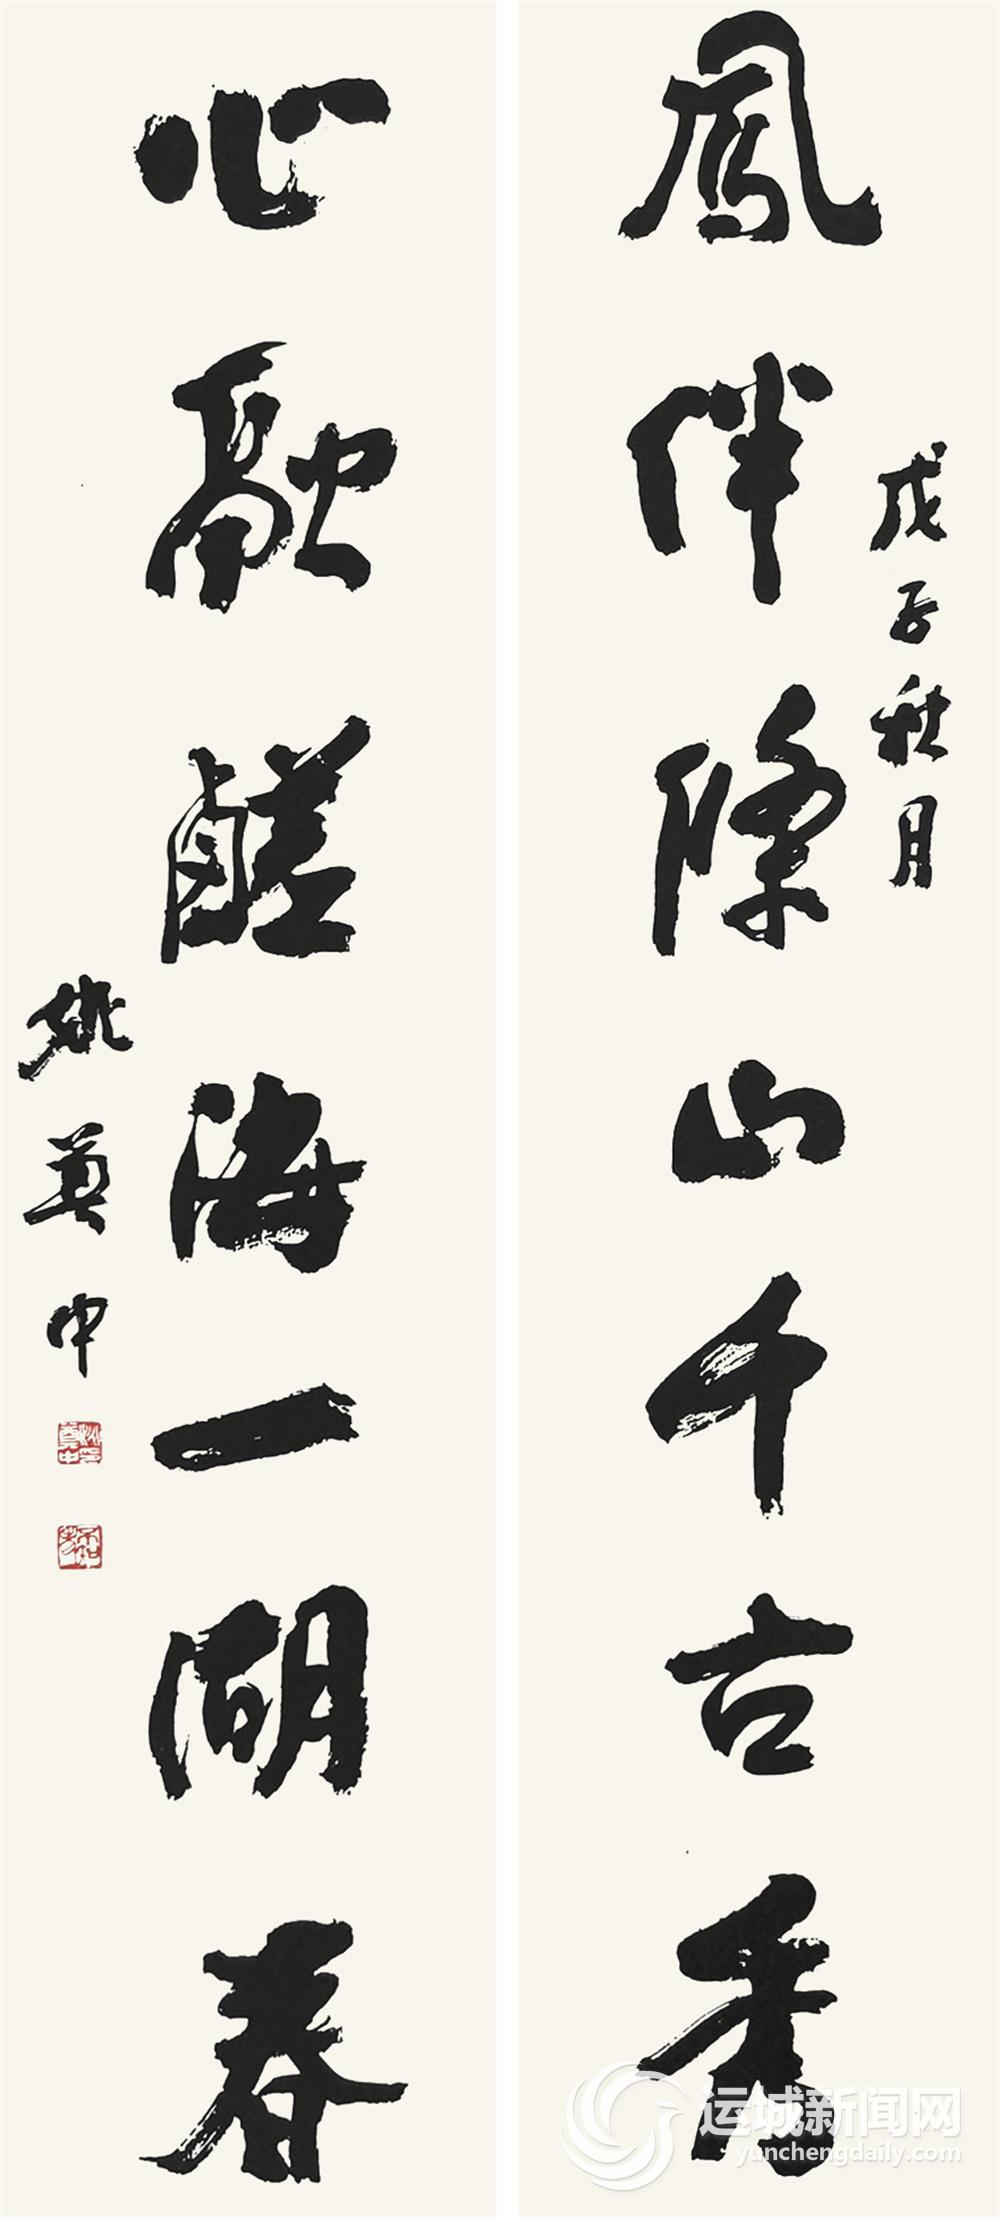 戊子秋月
鳳伴條山千古秀
心融鹺海一湖春
姚奠中
姚印奠中
运城新闻网
yunchengdaily.com